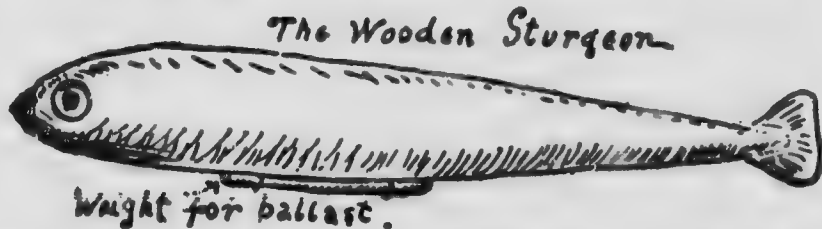 The Wooden Sturgeon
Weight for ballast.